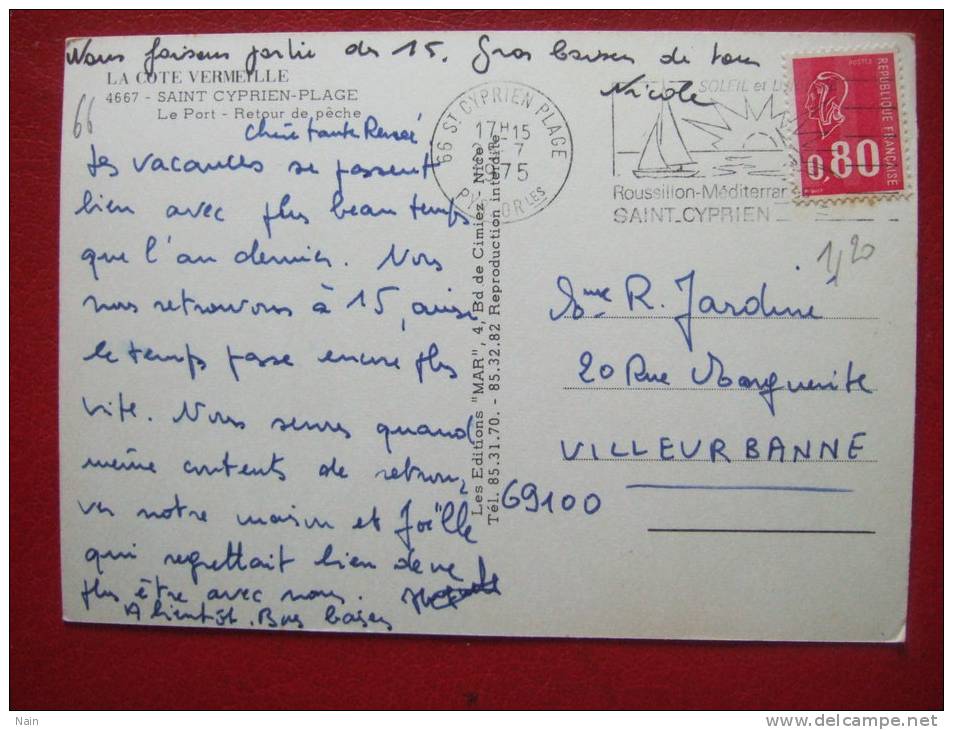 Nous faisons partie des 15. Gros baisers de tous
Nicole
LA COTE VERMEILLE
4667 - SAINT CYPRIEN-PLAGE
Le Port - Retour de pêche
66
Chère tante Renée
Les vacances se passent
bien avec plus beau temps
que l'an dernier. Nous
nous retrouvons à 15, aussi
le temps passe encore plus
vite. Nous serons quand
même contents de retrou
ver notre maison et Joëlle
qui regrettait bien de ne
plus être avec nous.
A bientôt. Bons baisers
66 ST CYPRIEN PLAGE
17H15
-7
1975
PYR. OR LES
SOLEIL et
Roussillon-Méditerran
SAINT_CYPRIEN
POSTES
REPUBLIQUE FRANÇAISE
0,80
Les Editions "MAR", 4, Bd de Cimiez - Nice
Tél. 85.31.70. - 85.32.82 Reproduction interdite
1,20
Mme R. Jardiné
20 Rue Marguerite
VILLEURBANNE
69100
Nain
www.delcampe.net